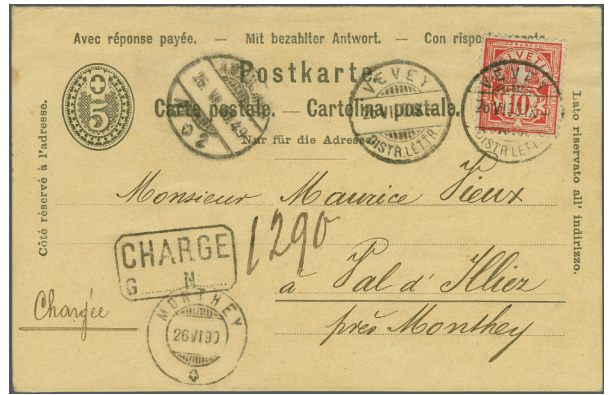 Avec réponse payée. — Mit bezahlter Antwort. — Con
Postkarte.
Carte postale. — Cartolina postale.
Nur für die Adresse.
Côté réservé à l'adresse.
Lato riservato all' indirizzo.
5
26 VI
2
VEVEY
26 VI 90
DISTR. LETTR.
HELVETIA
10
VEVEY
26 VI 90
DISTR. LETTR.
Monsieur Maurice Vieux
à Val d'Illiez
près Monthey
1290
CHARGÉ
N
Chargée
MONTHEY
26 VI 90